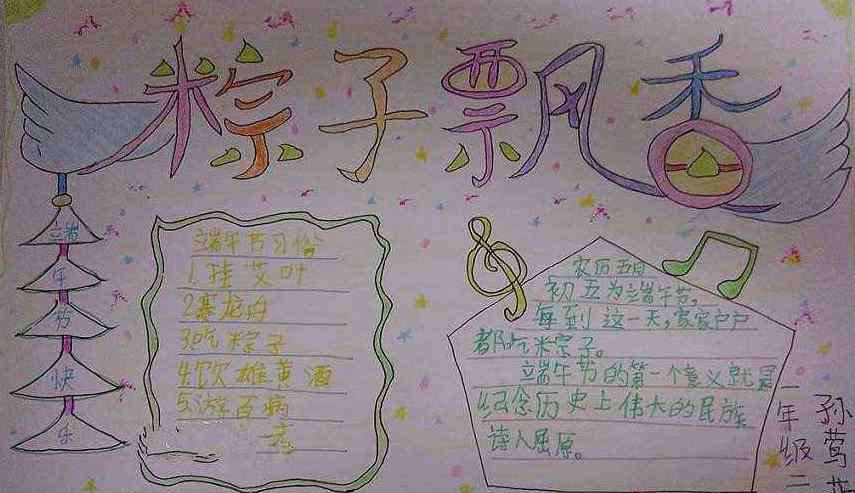 粽子飘香
端午节快乐
端午节习俗
1.挂艾叶
2.赛龙舟
3.吃粽子
4.饮雄黄酒
5.游百病
农历五月
初五为端午节,
每到这一天,家家户户
都吃粽子。
端午节的第一个意义就是
纪念历史上伟大的民族
诗人屈原。
一年级二
孙莺